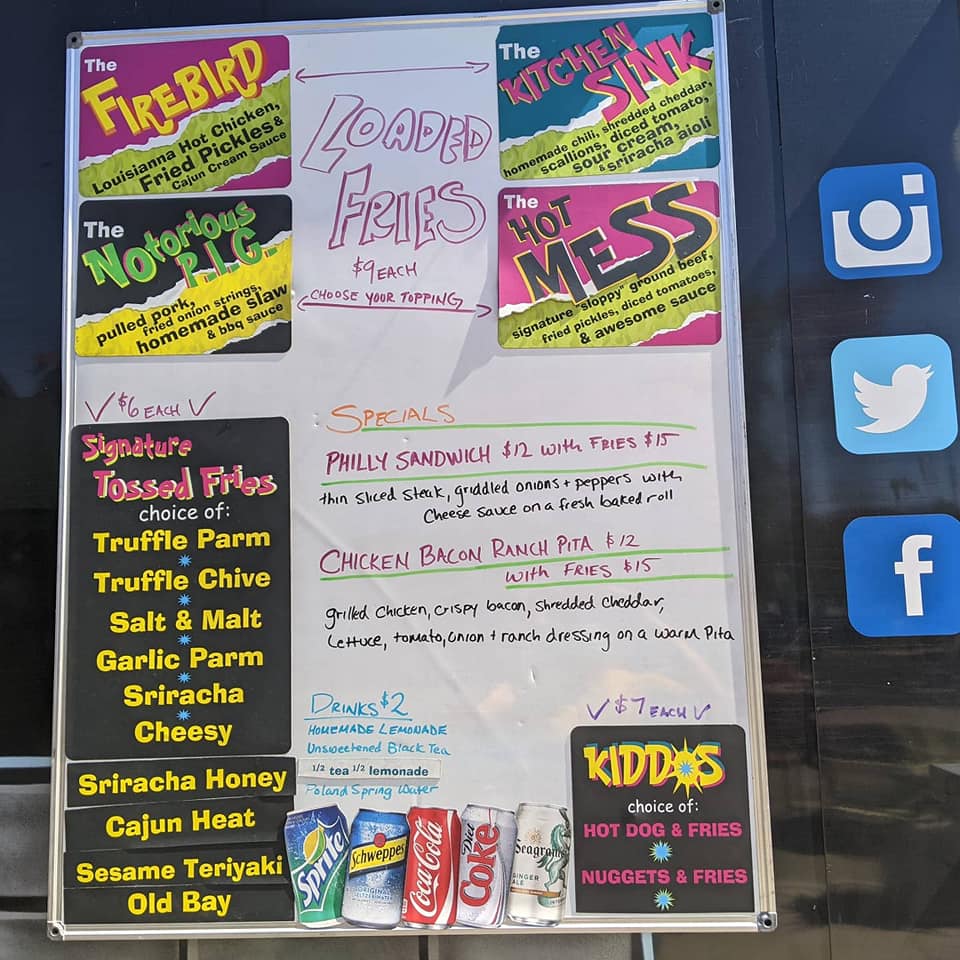 The
FIREBIRD
Louisianna Hot Chicken,
Fried Pickles &
Cajun Cream Sauce
The
Notorious
P.I.G.
pulled pork,
fried onion strings,
homemade slaw
& bbq sauce
LOADED
FRIES
$9 EACH
CHOOSE YOUR TOPPING
The
KITCHEN
SINK
homemade chili, shredded cheddar,
scallions, diced tomato,
sour cream,
& sriracha aioli
The
HOT
MESS
signature "sloppy" ground beef,
fried pickles, diced tomatoes,
& awesome sauce
$6 EACH
Signature
Tossed Fries
choice of:
Truffle Parm
Truffle Chive
Salt & Malt
Garlic Parm
Sriracha
Cheesy
Sriracha Honey
Cajun Heat
Sesame Teriyaki
Old Bay
SPECIALS
PHILLY SANDWICH $12 with FRIES $15
thin sliced steak, griddled onions + peppers with
Cheese sauce on a fresh baked roll
CHICKEN BACON RANCH PITA $12
with FRIES $15
grilled chicken, crispy bacon, shredded cheddar,
lettuce, tomato, onion + ranch dressing on a warm Pita
DRINKS $2
HOMEMADE LEMONADE
Unsweetened Black Tea
1/2 tea 1/2 lemonade
Poland Spring Water
Sprite
Schweppes
ORIGINAL
SELTZER WATER
Coca-Cola
Diet
Coke
Seagram's
GINGER
ALE
$7 EACH
KIDDOS
choice of:
HOT DOG & FRIES
NUGGETS & FRIES
f